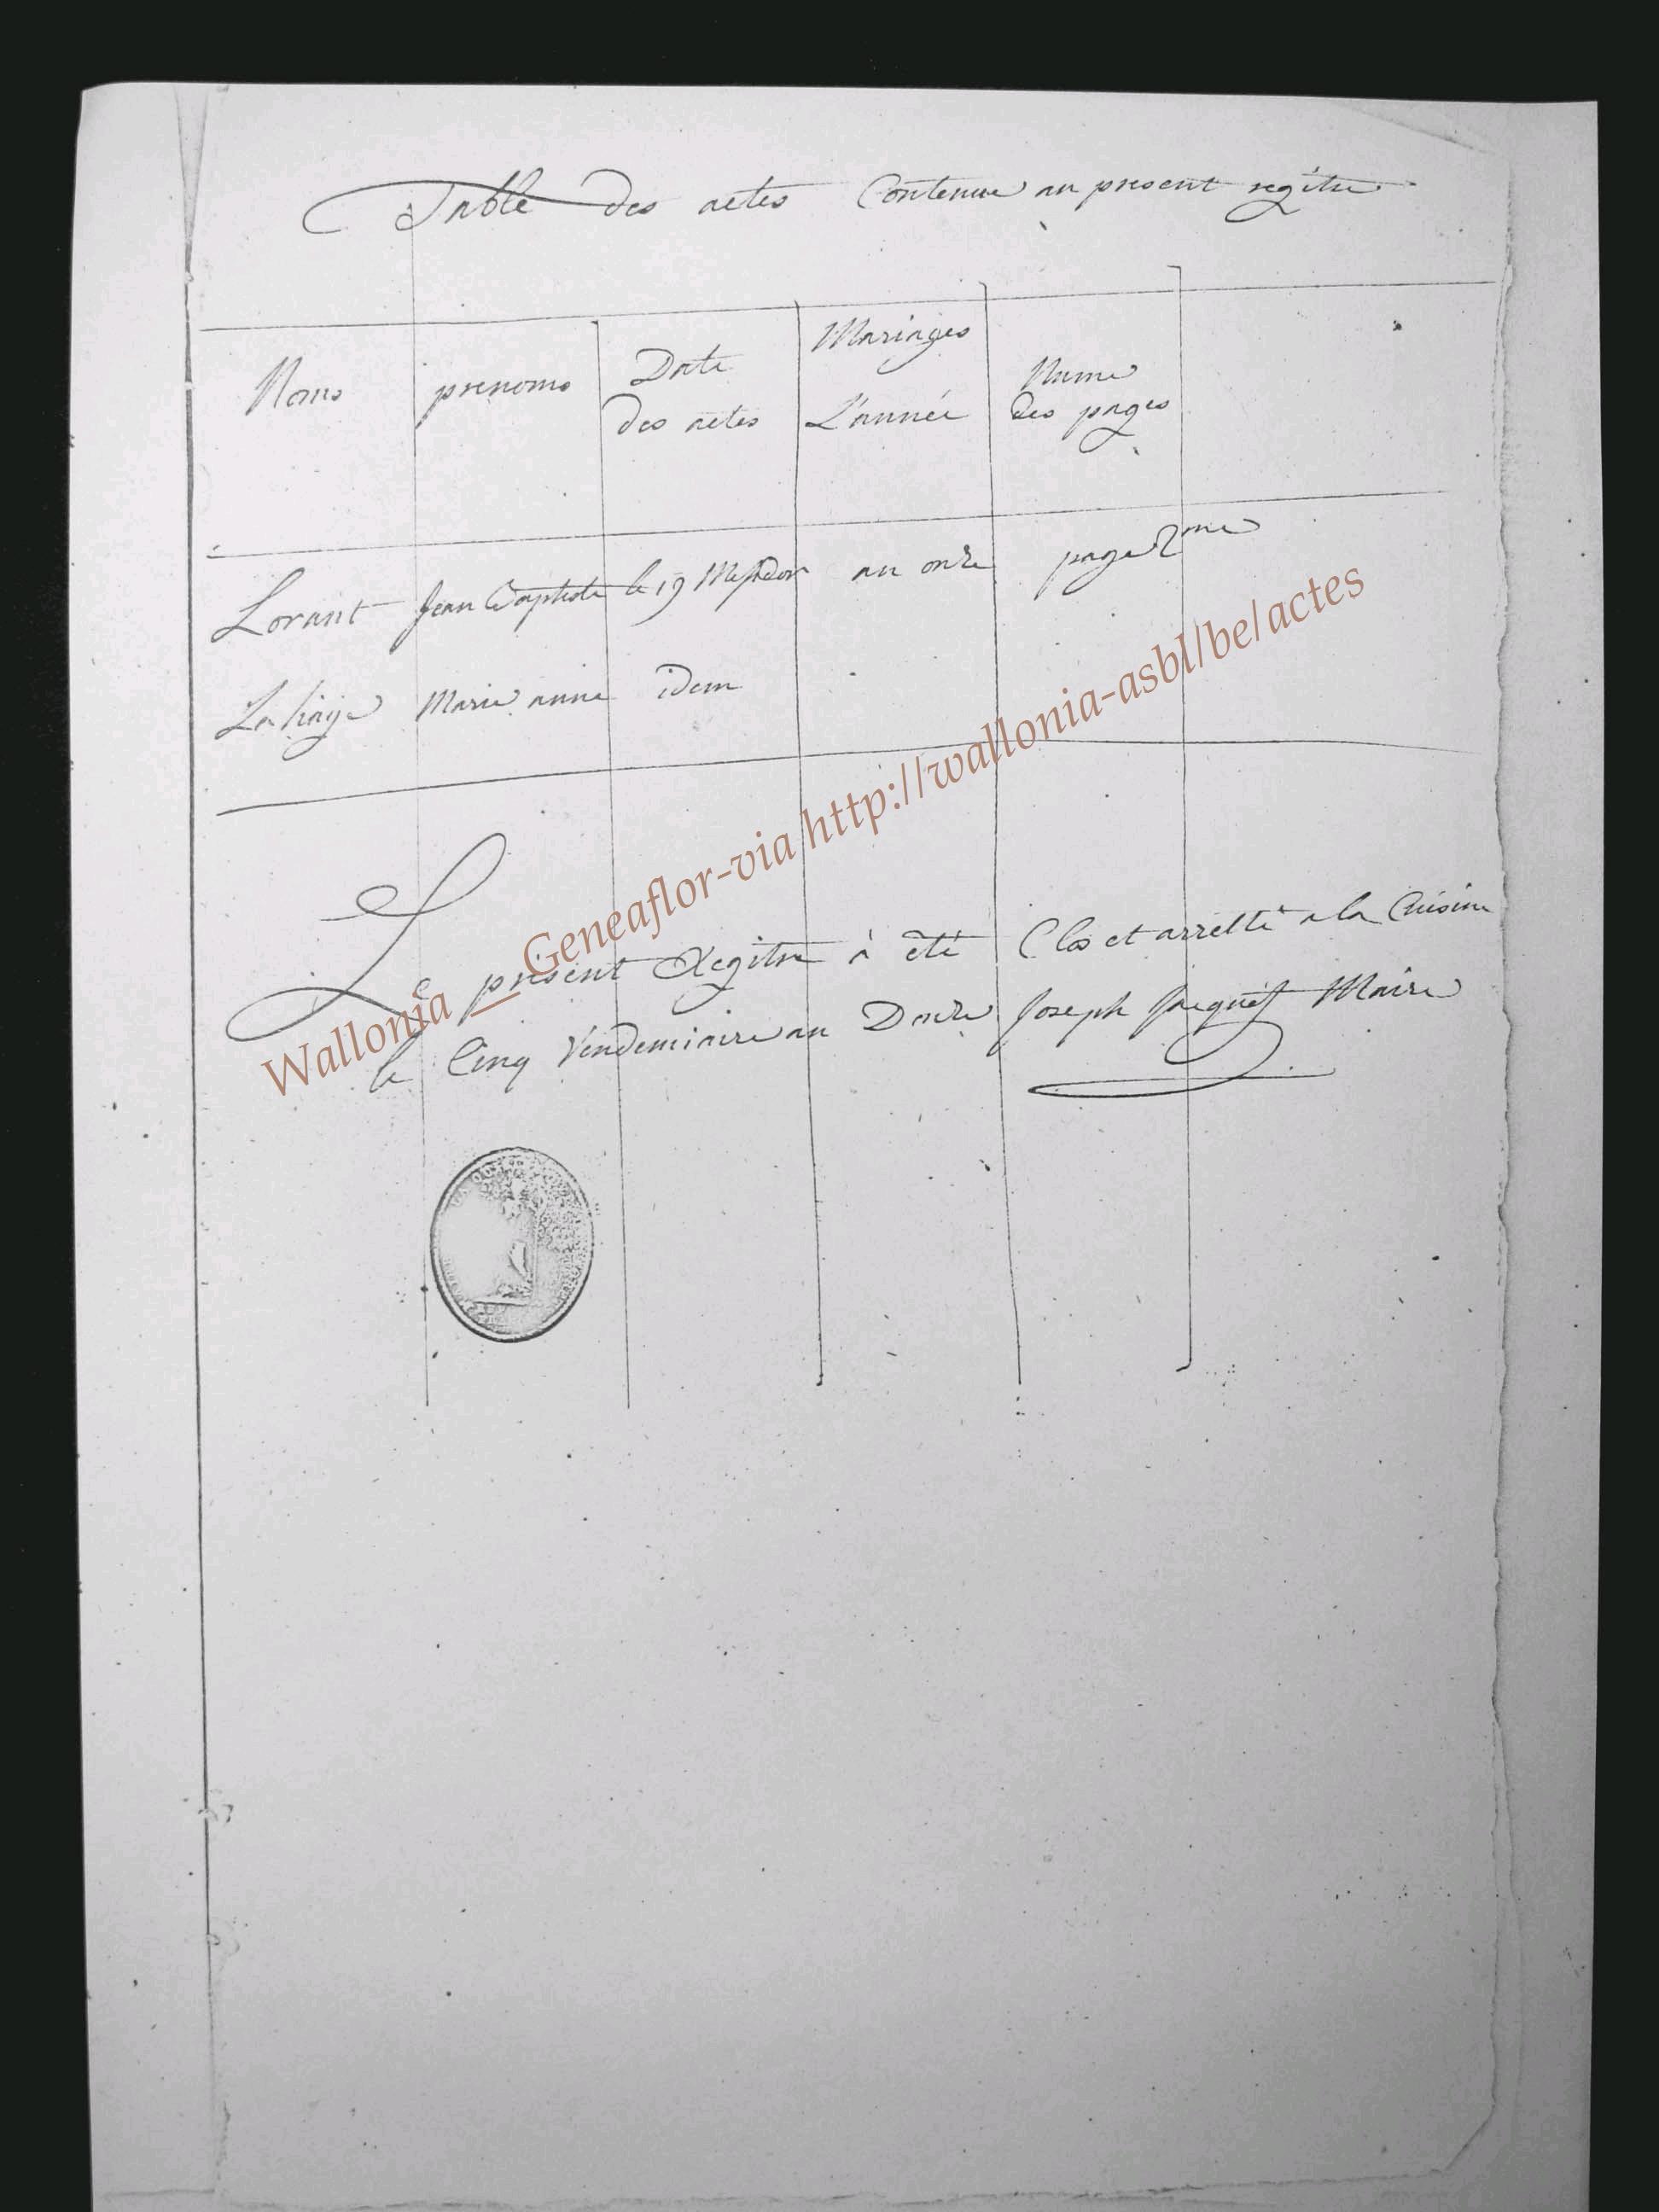 Table des actes Contenue au present regitre
Noms prenoms Date des actes Mariages L'année Nume des pages
Lorant Jean Baptiste le 19 Messidor an onze page 2me
Lahaye Marie anne idem
Le présent Regitre à été Clos et arretté a la Cuisine
le Cinq Vendemiaire an Douze Joseph Jacquet Maire
Wallonia _ Geneaflor-via http://wallonia-asbl/be/actes